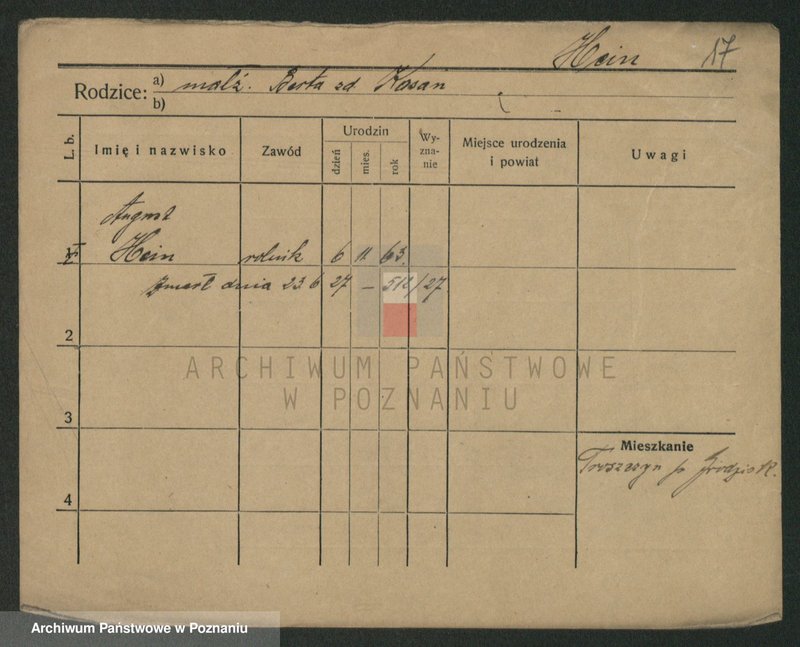 Hein 17
Rodzice: a) małż. Berta zd Kosan
b)
L. b. Imię i nazwisko Zawód Urodzin Wyzna-nie Miejsce urodzenia i powiat Uwagi
dzień mies. rok
August
1 Hein rolnik 6 11 63.
zmarł dnia 23 6 27 – 512/27
2
ARCHIWUM PAŃSTWOWE
W POZNANIU
3
Mieszkanie
p. Grodzisk.
4
Archiwum Państwowe w Poznaniu